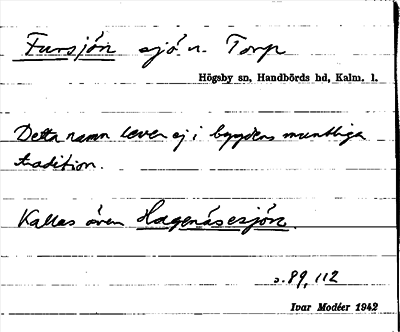 Fursjön sjö n. Torp
Högsby sn, Handbörds hd, Kalm. l.
Detta namn lever ej i bygdens muntliga
tradition.
Kallas även Hagenäsesjön.
s. 89, 112
Ivar Modéer 1942